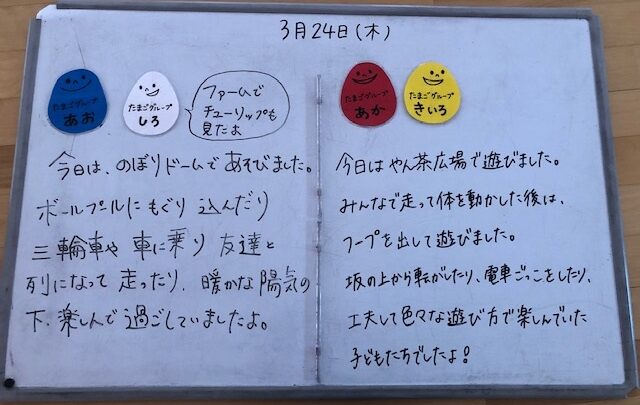 3月24日(木)
たまごグループ
あお
たまごグループ
しろ
ファームで
チューリップも
見たよ
今日は、のぼりドームであそびました。
ボールプールにもぐり込んだり
三輪車や車に乗り友達と
列になって走ったり、暖かな陽気の
下、楽しんで過ごしていましたよ。
たまごグループ
あか
たまごグループ
きいろ
今日はやん茶広場で遊びました。
みんなで走って体を動かした後は、
フープを出して遊びました。
坂の上から転がしたり、電車ごっこをしたり、
工夫して色々な遊び方で楽しんでいた
子どもたちでしたよ!